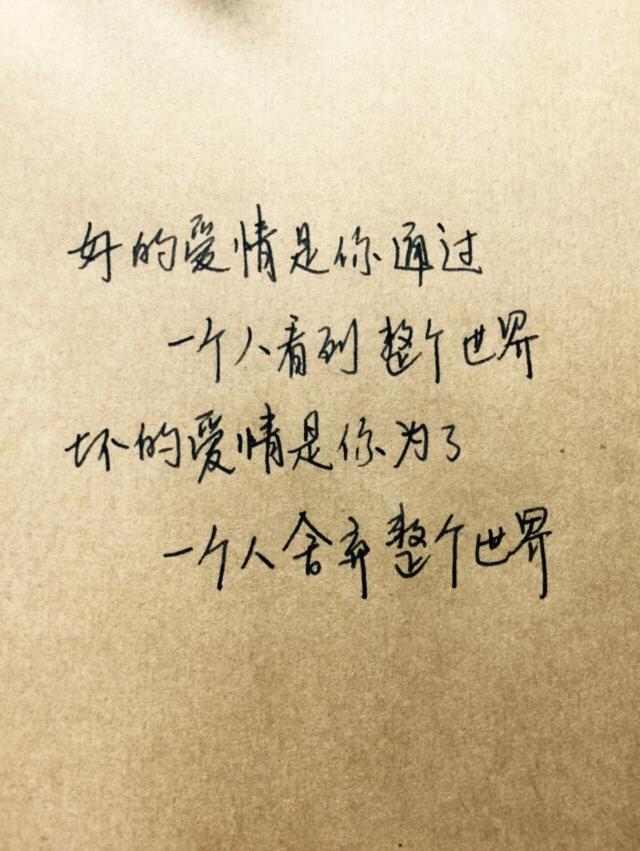 好的爱情是你通过
一个人看到整个世界
坏的爱情是你为了
一个人舍弃整个世界